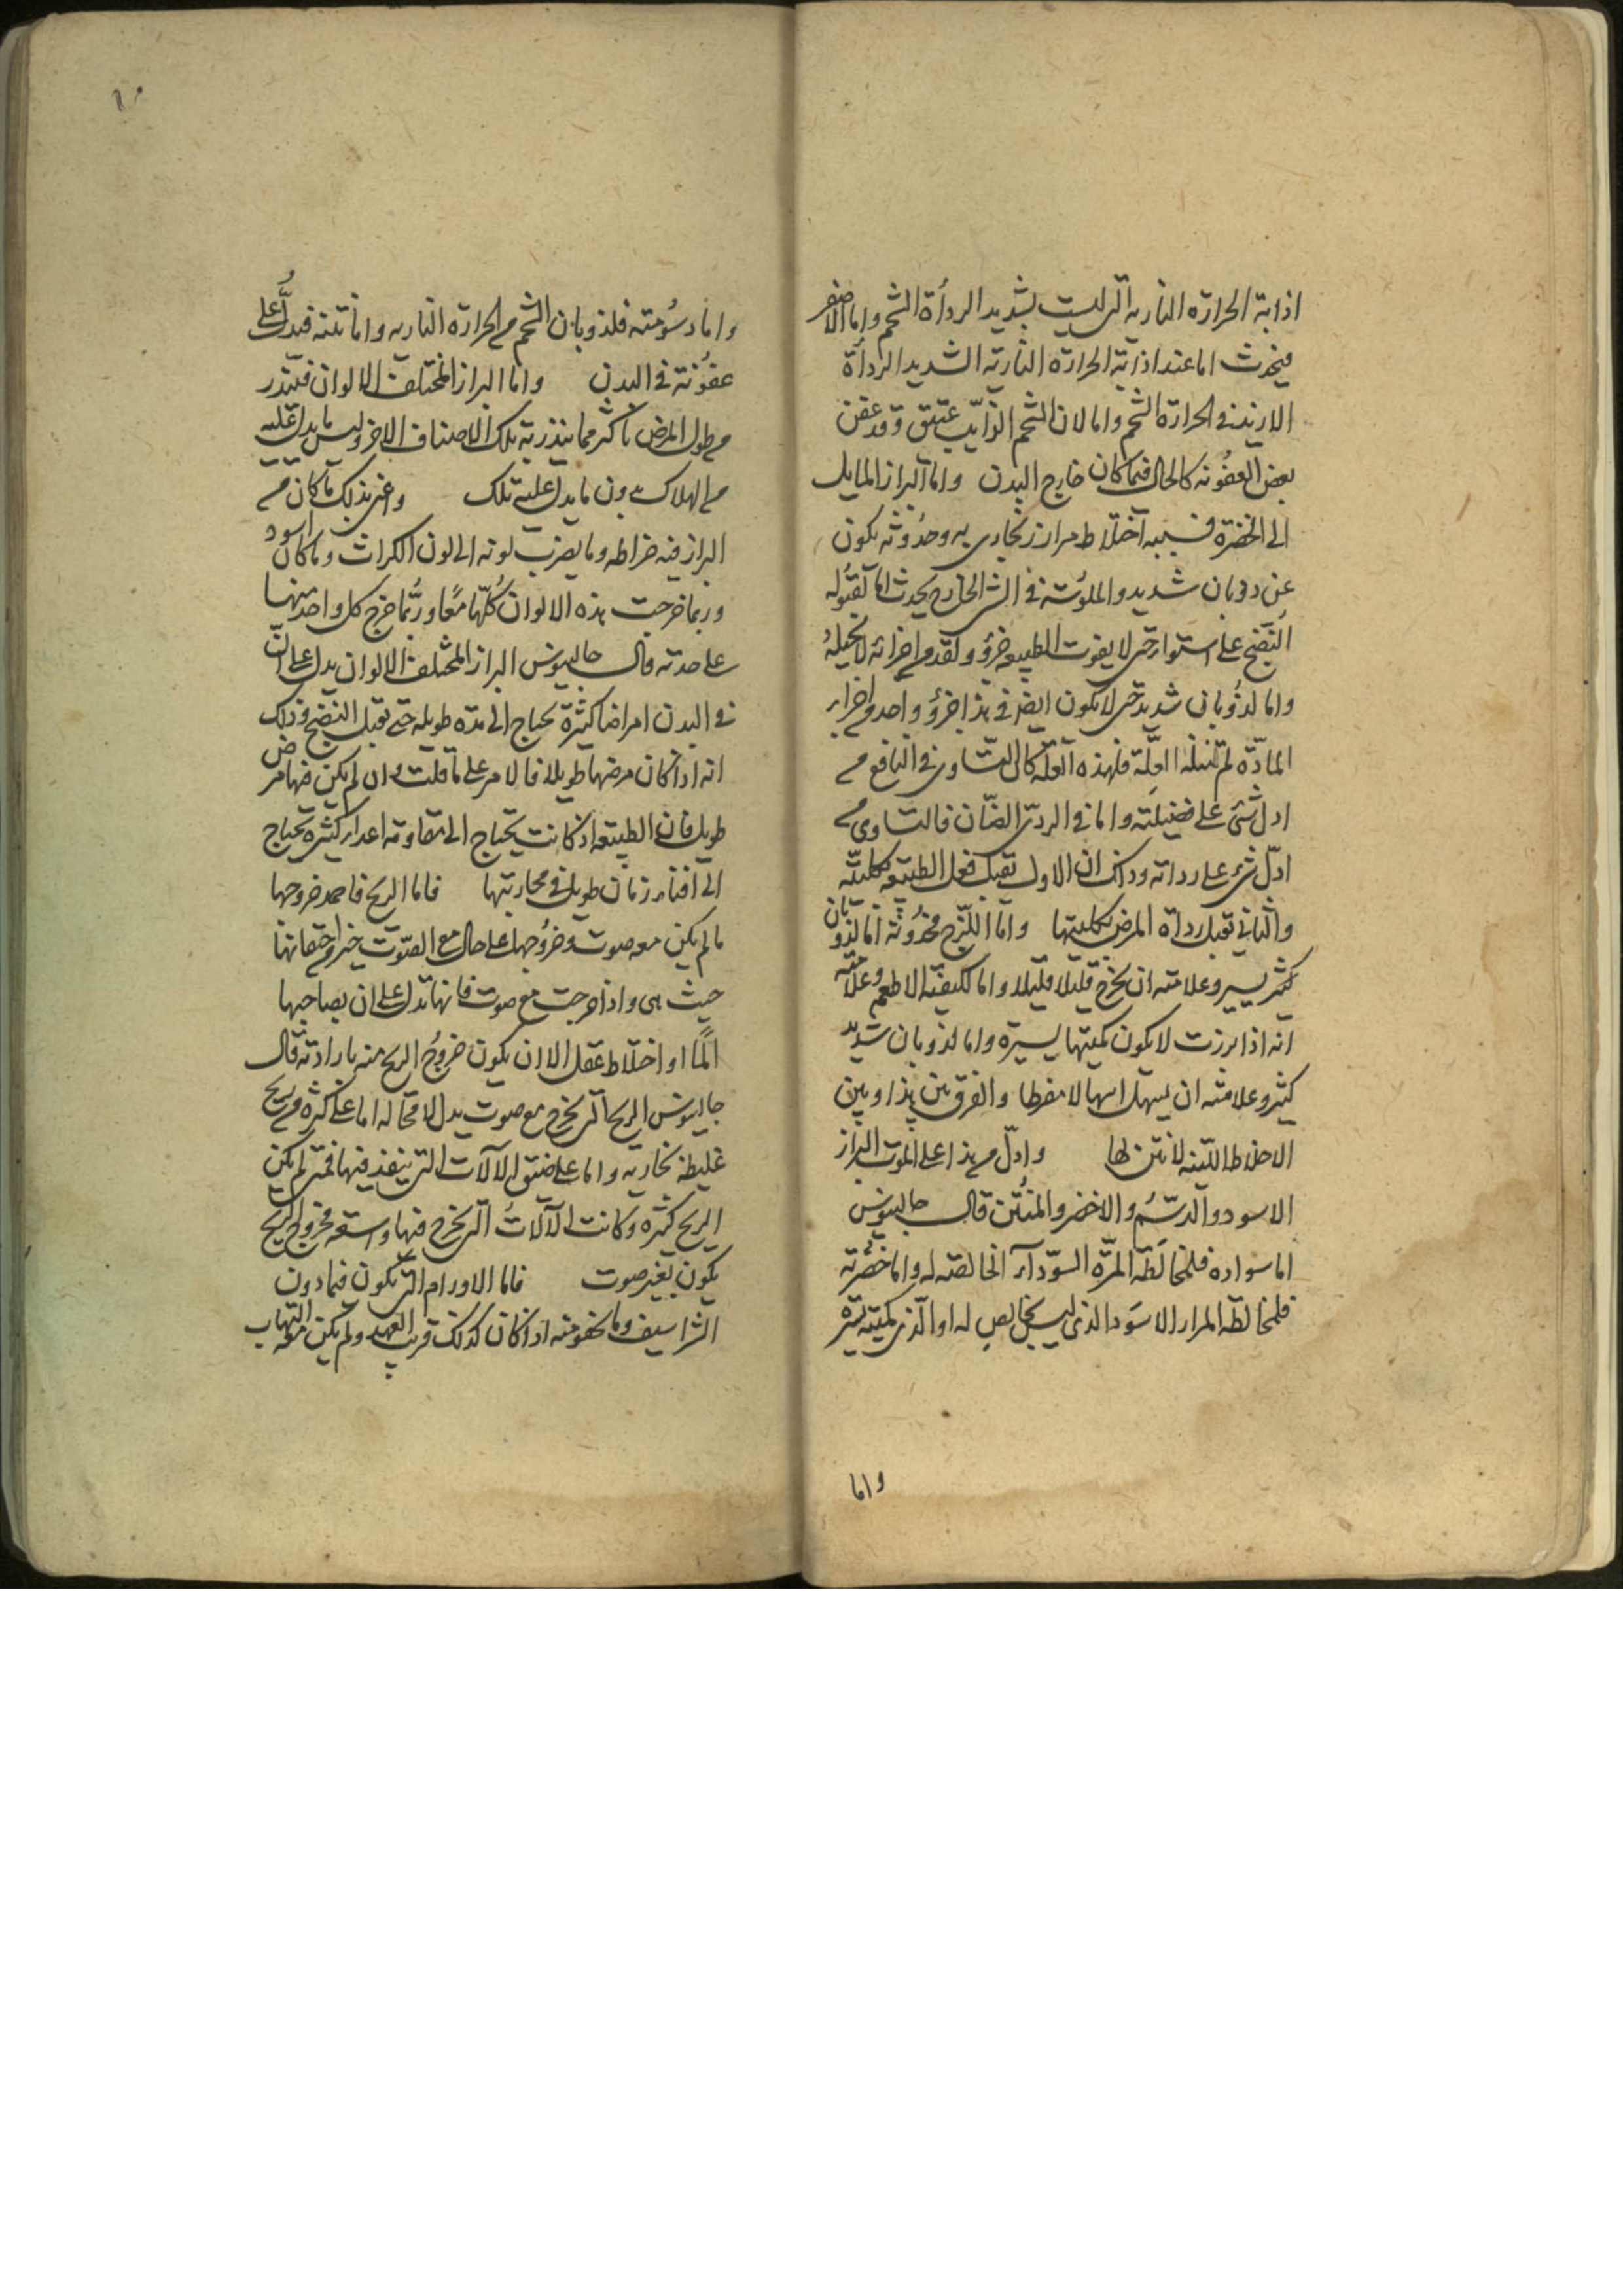 اذابة الحرارة النارية التى ليست بشديد الرداة الشحم واما الاصفر
فيحدث اما عند اذابة الحرارة النارية الشديد الرداة
الازيد فى الحرارة الشحم واما لان الشحم الذايب عتيق وقد عفن
بعض العفونة كالحال فيما كان خارج البدن واما البراز المايل
الى الخضرة فسببه اختلاط مرار زنجارى به وحدوثه يكون
عن ذوبان شديد والملوسة فى الشى الخارج يحدث اما لقبوله
النضج على استوا حتى لا يفوت الطبيعة جزؤ ولقدم اجزائه لا تحيله
واما لذوبان شديد حتى لا يكون ايضا فى هذا جزؤ واحد من اجزاء
المادة لم تنله العلة فلهذه العلة كان التساوى فى النافع من
ادل شى على فضيلته واما فى الردى الضان فالتساوى من
ادل شى على رداته وذاك ان الاول تقبل فعل الطبيعة بكليته
والثانى تقبل رداة المرض بكليتها واما اللزج فحدوثه اما لذوبان
كثير يسير وعلامته ان يخرج قليلا قليلا واما لكيفية الاطعمة وعلامته
انه اذا برزت لا يكون كميتها يسيرة واما لذوبان شديد
كثير وعلامته ان يسهل اسهالا مفرطا والفرق بين هذا وبين
الاخلاط اللينة لا نتن لها وادل من هذا على الموت البراز
الاسود والدسم والاخضر والمنتن قال جالينوس
اما سواده فلمخالطة المرة السودآء الخالصة له واما خضرته
فلمخالطة المرار الاسود الذى ليس بخالص له او الذى كميته يسيرة
واما
واما دسومته فلذوبان الشحم من الحرارة النارية واما نتنه فيدل على
عفونة فى البدن واما البراز المختلف الالوان فينذر
من طول المرض باكثر مما ينذر به تلك الاصناف الاخر وليس ما يدل عليه
من الهلاك بدون ما يدل عليه تلك واعنى بذلك ما كان من
البراز فيه خراطه وما يضرب لونه الى لون الكراث وما كان اسود
وربما خرجت هذه الالوان كلها معا وربما خرج كل واحد منها
على حدته قال جالينوس البراز المختلف الالوان يدل على ان
فى البدن امراضا كثيرة يحتاج الى مدة طويلة حتى تقبل النضج وذلك
انه اذا كان مرضها طويلا فالامر على ما قلت وان لم يكن فيها مرض
طويل فان الطبيعة اذ كانت يحتاج الى مقاومة اعداء كثيرة تحتاج
الى افناء زمان طويل فى محاربتها فاما الريح فاحمد خروجها
ما لم يكن معه صوت وخروجها على حال مع الصوت خير من احتقانها
حيث هى واذا خرجت مع صوت فانها تدل على ان بصاحبها
الما او اختلاط عقل الا ان يكون خروج الريح منه بارادته قال
جالينوس الريح التى يخرج مع صوت يدل لا محالة اما على كثرة من ريح
غليظة بخارية واما على ضيق الالآت التى ينفذ فيها فمتى لم يكن
الريح كثيرة وكانت الآلات التى يخرج فيها واسعة فخروج الريح
يكون بغير صوت فاما الاورام التى تكون فيما دون
الشراسيف وما نحفومنه اذا كان كذلك قريب العهد ولم يكن معه التهاب